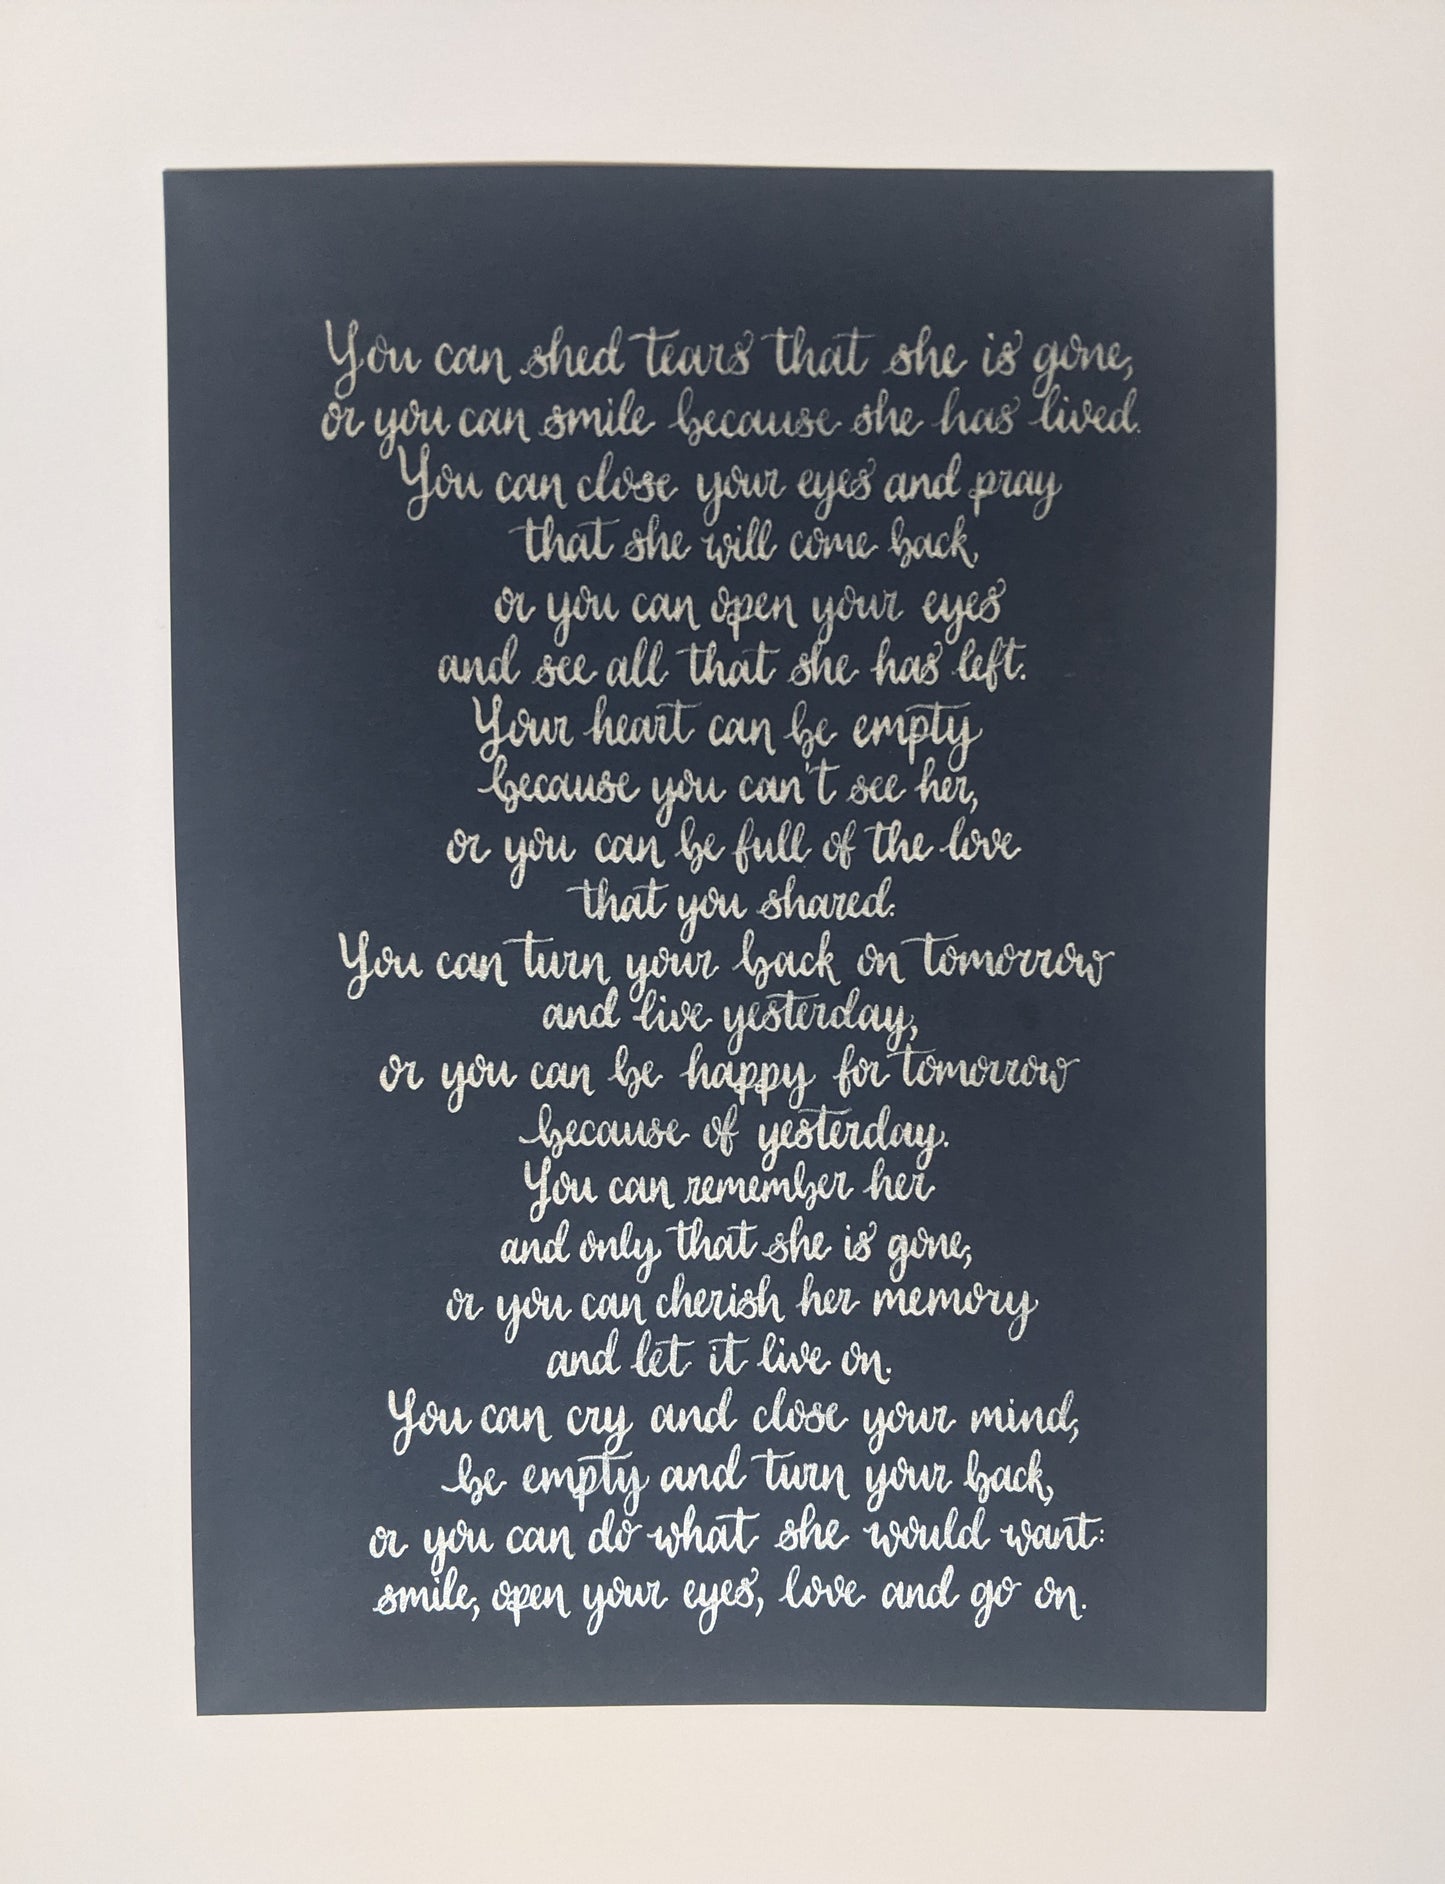 You can shed tears that she is gone,
or you can smile because she has lived.
You can close your eyes and pray
that she will come back,
or you can open your eyes
and see all that she has left.
Your heart can be empty
because you can't see her,
or you can be full of the love
that you shared.
You can turn your back on tomorrow
and live yesterday,
or you can be happy for tomorrow
because of yesterday.
You can remember her
and only that she is gone,
or you can cherish her memory
and let it live on.
You can cry and close your mind,
be empty and turn your back,
or you can do what she would want:
smile, open your eyes, love and go on.